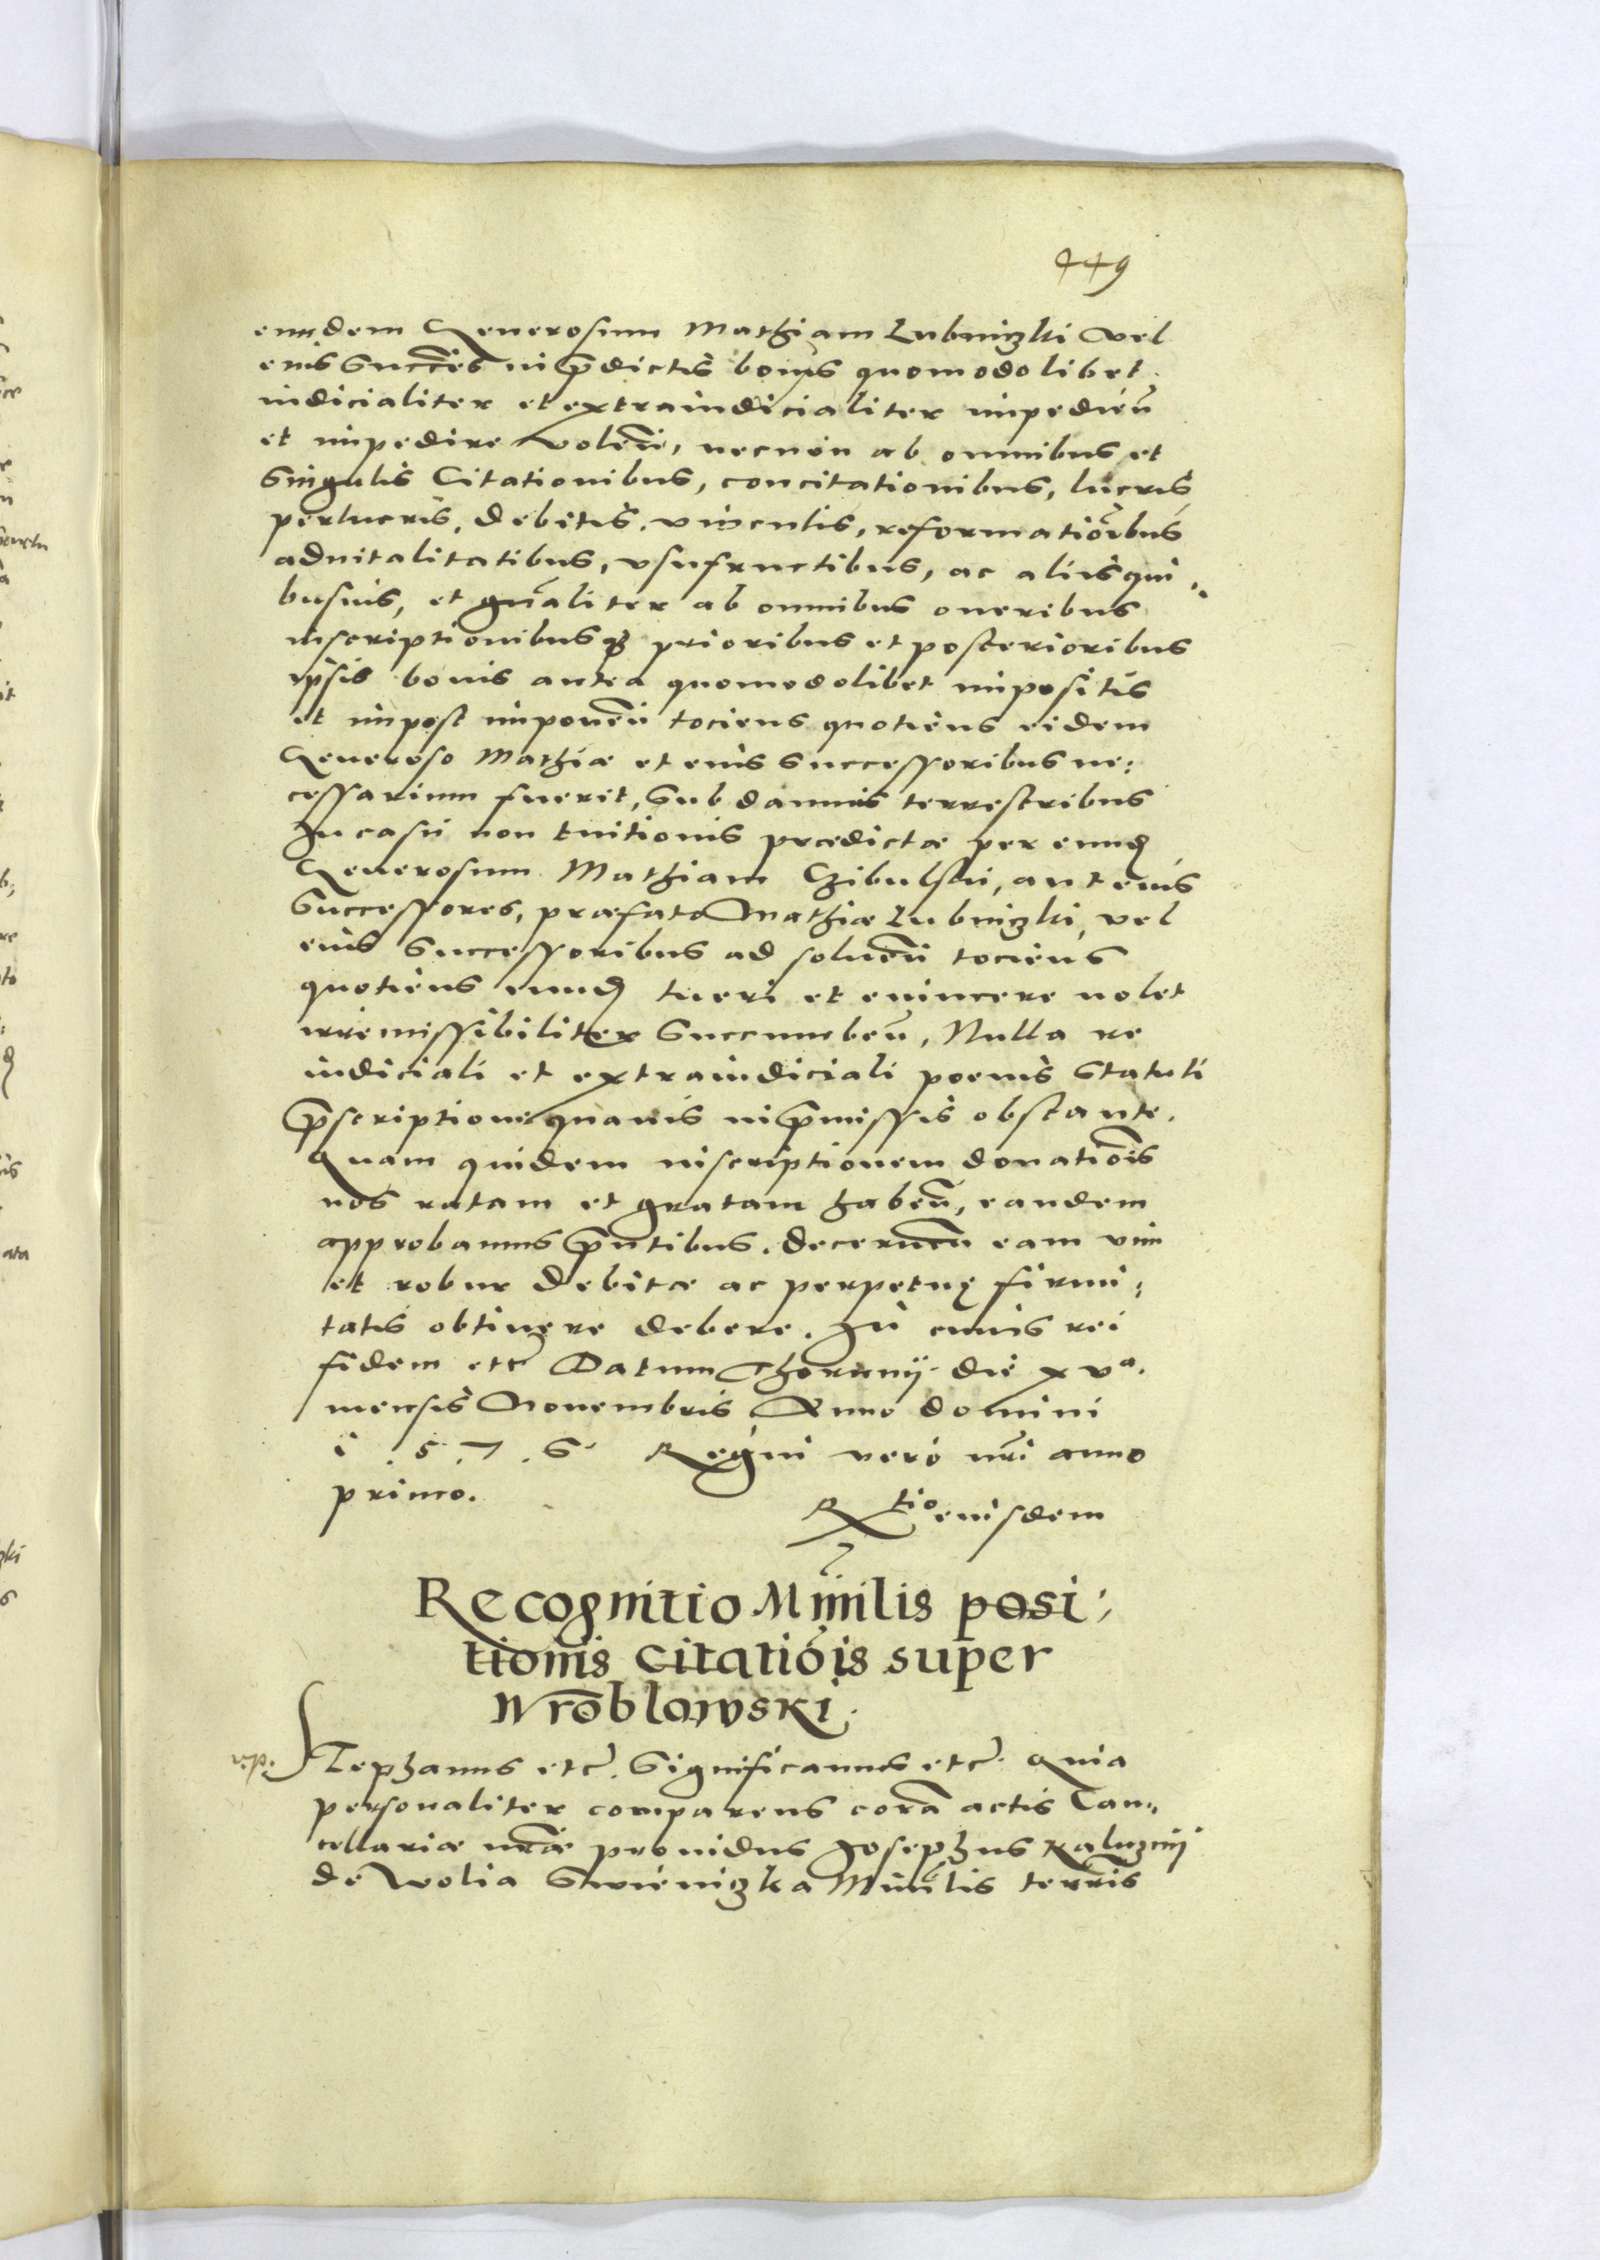 449
eundem Generosum Mathiam Lubniczki vel
eius succes in p̄dictis bonis quomodolibet
iudicialiter et extraiudicialiter impedieñ
et impedire voleñ, necnon ab omnibus et
singulis Citationibus, concitationibus, lucris
perlucris, debitis, vinculis, reformatiōibus
aduitalitatibus, vsufructibus, ac alijs qui
busuis, et gn̄aliter ab omnibus oneribus
inscriptionibusq̧ prioribus et posterioribus
ipsis bonis antea quomodolibet impositis
et impost imponeñ tociens quotiens eidem
Generoso Mathiæ et eius successoribus ne:
cessarium fuerit, sub damnis terrestribus
In casu non tuitionis prædictæ per eund
Generosum Mathiam Czibulski, aut eius
Successores, præfato Mathiæ Lubniczki, vel
eius Successoribus ad solueñ tociens
quotiens eund tueri et euincere nolet
irremissibiliter succumbeñ, Nulla re
iudiciali et extraiudiciali poenis statuti
p̄scriptione quauis in p̄missis obstante.
Quam quidem inscriptionem donatiōis
nos ratam et gratam habeñ, eandem
approbamus p̄ntibus. decerneñ eam vim
et robur debitæ ac perpetuę firmi:
tatis obtinere debere. In cuius rei
fidem etc̄ Datum Thorunij die xvᵃ.
mensis Nouembris Anno domini
1.5.7.6. Regni vero nr̄i anno
primo.
Rtio eiusdem
Recognitio Mīnilis posi:
tionis citatiōis super
Wroblowski.
v.p. Stephanus etc̄. Significamus etc̄. Quia
personaliter comparens corā actis Can:
cellariæ nr̄æ prouidus Josephus Kaluznij
de Wolia Swieniczka Mīnilis terrīs